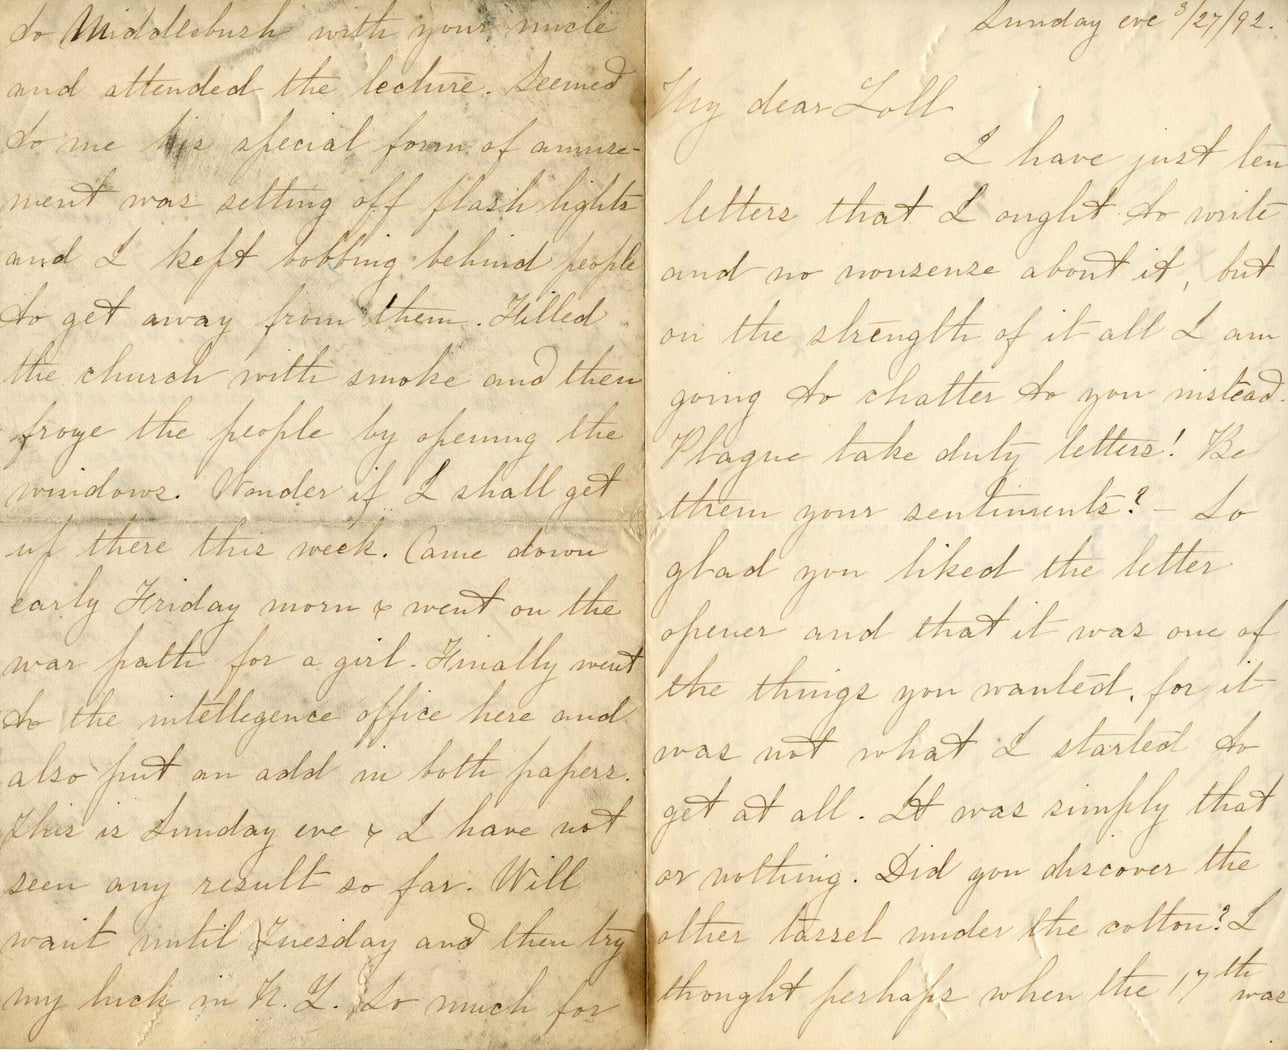 Sunday eve 3/27/92.
My dear Loll
I have just ten
letters that I ought to write
and no nonsense about it, but
on the strength of it all I am
going to chatter to you instead.
Plague take duty letters! Be
them your sentiments? – So
glad you liked the letter
opener and that it was one of
the things you wanted, for it
was not what I started to
get at all. It was simply that
or nothing. Did you discover the
other tassel under the cotton? I
thought perhaps when the 17th was
to Middlebush with your uncle
and attended the lecture. Seemed
to me his special form of amuse-
ment was setting off flash lights
and I kept bobbing behind people
to get away from them. Filled
the church with smoke and then
froze the people by opening the
windows. Wonder if I shall get
up there this week. Came down
early Friday morn & went on the
war path for a girl. Finally went
to the intellegence office here and
also put an add in both papers.
This is Sunday eve & I have not
seen any result so far. Will
wait until Tuesday and then try
my luck in N. Y. So much for